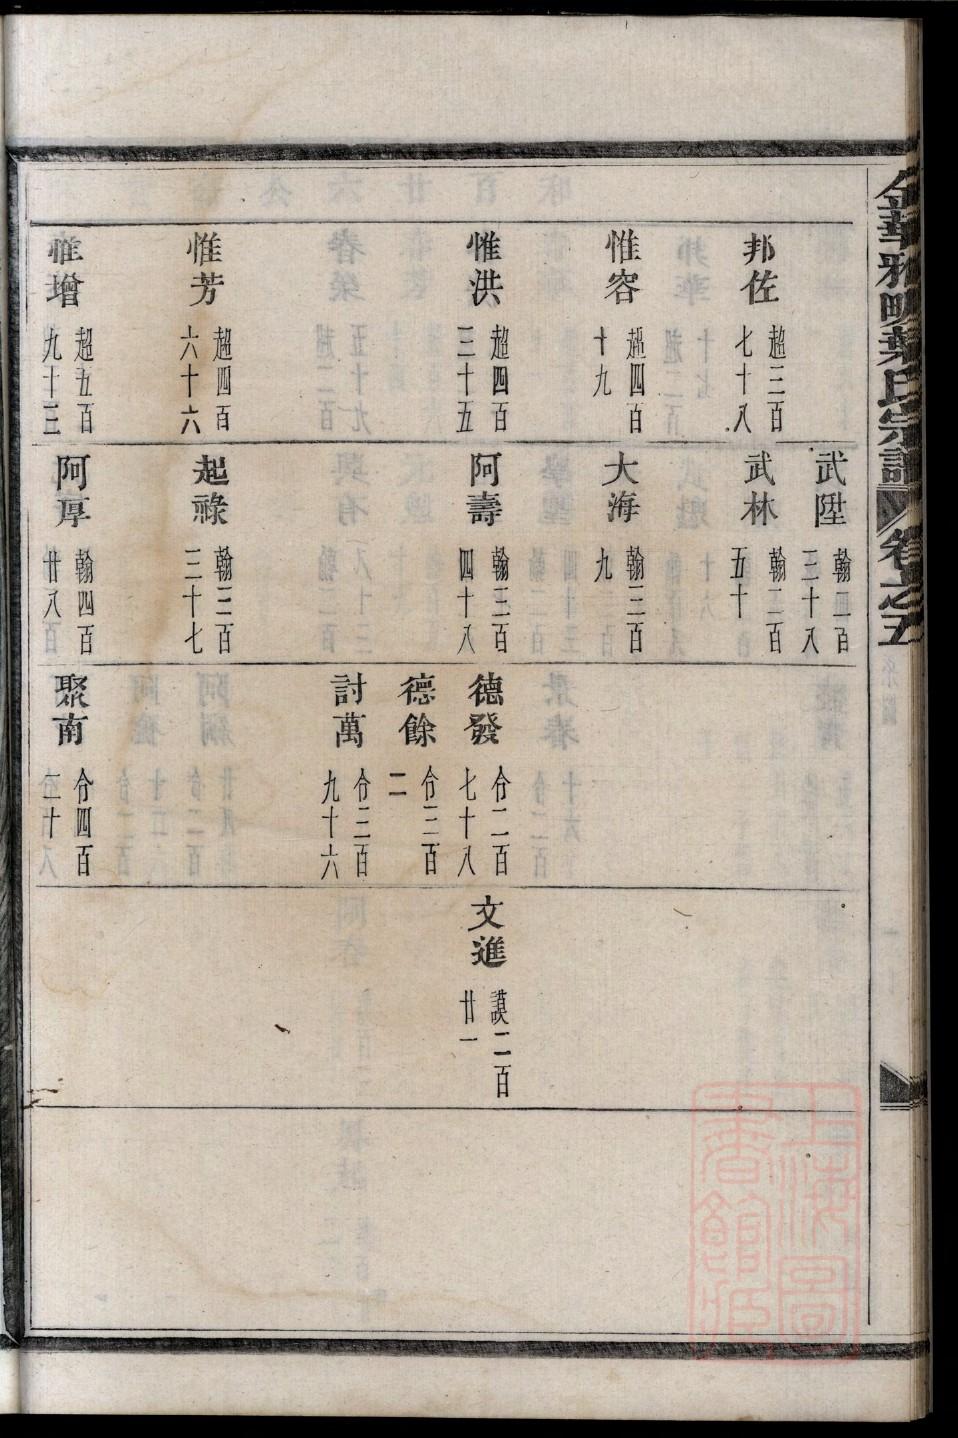 金華雅畈葉氏宗譜
卷之五
邦佐 超三百七十八
惟容 超四百十九
惟洪 超四百三十五
惟芳 超四百六十六
惟增 超五百九十三
武陞 翰二百三十八
武林 翰二百五十
大海 翰三百九
阿壽 翰三百四十八
起祿 翰三百三十七
阿厚 翰四百廿八
德發 仱二百七十八
德餘 仱三百二
討萬 仱三百九十六
聚南 仱四百二十六
文進 謨二百廿一
上海圖書館藏